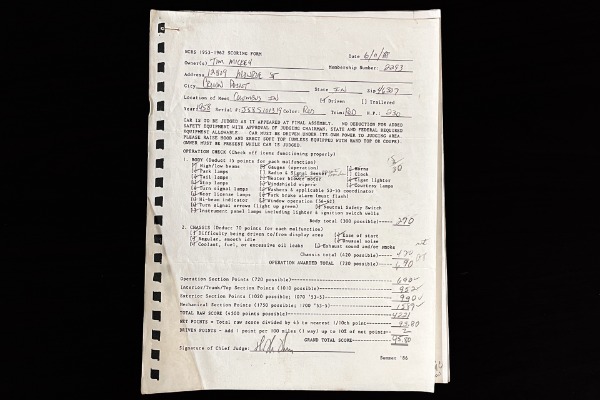 NCRS 1953-1962 SCORING FORM
Date 6/11/88
Owner(s) TOM MICKEY
Membership Number: 2293
Address ST
City CROWN POINT State IN Zip 46307
Location of Meet COLUMBUS IN Driven Trailered
Year 1958 Serial #: J58S101319 Color: RED Trim: RED H.P.: 230
CAR IS TO BE JUDGED AS IT APPEARED AT FINAL ASSEMBLY. NO DEDUCTION FOR ADDED
SAFETY EQUIPMENT WITH APPROVAL OF JUDGING CHAIRMAN. STATE AND FEDERAL REQUIRED
EQUIPMENT ALLOWABLE. CAR MUST BE DRIVEN UNDER ITS OWN POWER TO JUDGING AREA
PLEASE RAISE HOOD AND ERECT SOFT TOP (UNLESS EQUIPPED WITH HARD TOP OR COUPE).
OWNER MUST BE PRESENT WHILE CAR IS JUDGED.
OPERATION CHECK (Check off items functioning properly)
1. BODY (Deduct 15 points for each malfunction) 30
High/low beams Gauges (operation) Horns
Park lamps Radio & Signal Seeker Clock
Tail lamps Heater blower motor Cigar lighter
Stop lamps Windshield wipers Courtesy lamps
Turn signal lamps Washers & applicable 53-55 coordinator
Rear license lamps Park brake alarm (must flash)
Hi-beam indicator Window operation (56-62)
Turn signal arrows (light up green) Neutral Safety Switch
Instrument panel lamps including lighter & ignition switch wells
Body total (300 possible)----- 270
2. CHASSIS (Deduct 70 points for each malfunction)
Difficulty being driven to/from display area Ease of start
Regular, smooth idle Unusual noise
Coolant, fuel, or excessive oil leaks Exhaust sound and/or smoke
Chassis total (420 possible)----- 420
OPERATION AWARDED TOTAL (720 possible)----- 690
Operation Section Points (720 possible)----- 690
Interior/Trunk/Top Section Points (1010 possible)----- 952
Exterior Section Points (1020 possible; 1070 '53-5)----- 990
Mechanical Section Points (1750 possible; 1700 '53-5)-----
TOTAL RAW SCORE (4500 points possible)----- 4221
NET POINTS = Total raw score divided by 45 to nearest 1/10th point----- 93.80
DRIVEN POINTS - add 1 point per 100 miles (1 way) up to 10% of net points-- 2
GRAND TOTAL SCORE----- 95.80
Signature of Chief Judge:
Summer '88